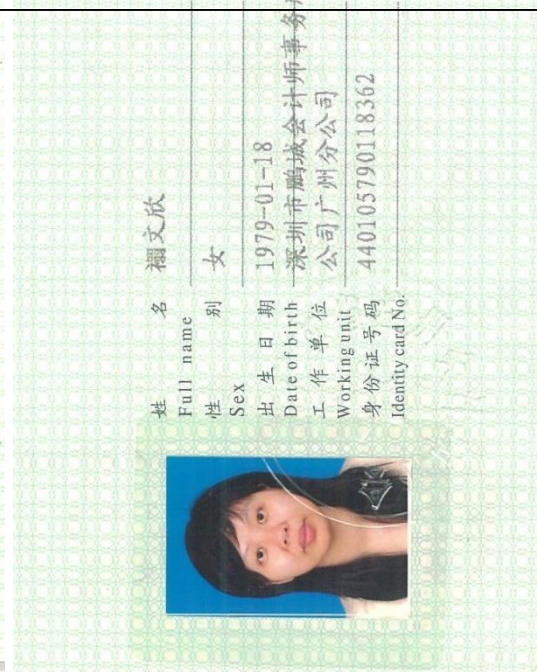 姓 名 禤文欣
Full name
性 别 女
Sex
出 生 日 期 1979-01-18
Date of birth
工 作 单 位 深圳市鹏城会计师事务
Working unit 公司广州分公司
身份证号码 440105790118362
Identity card No.